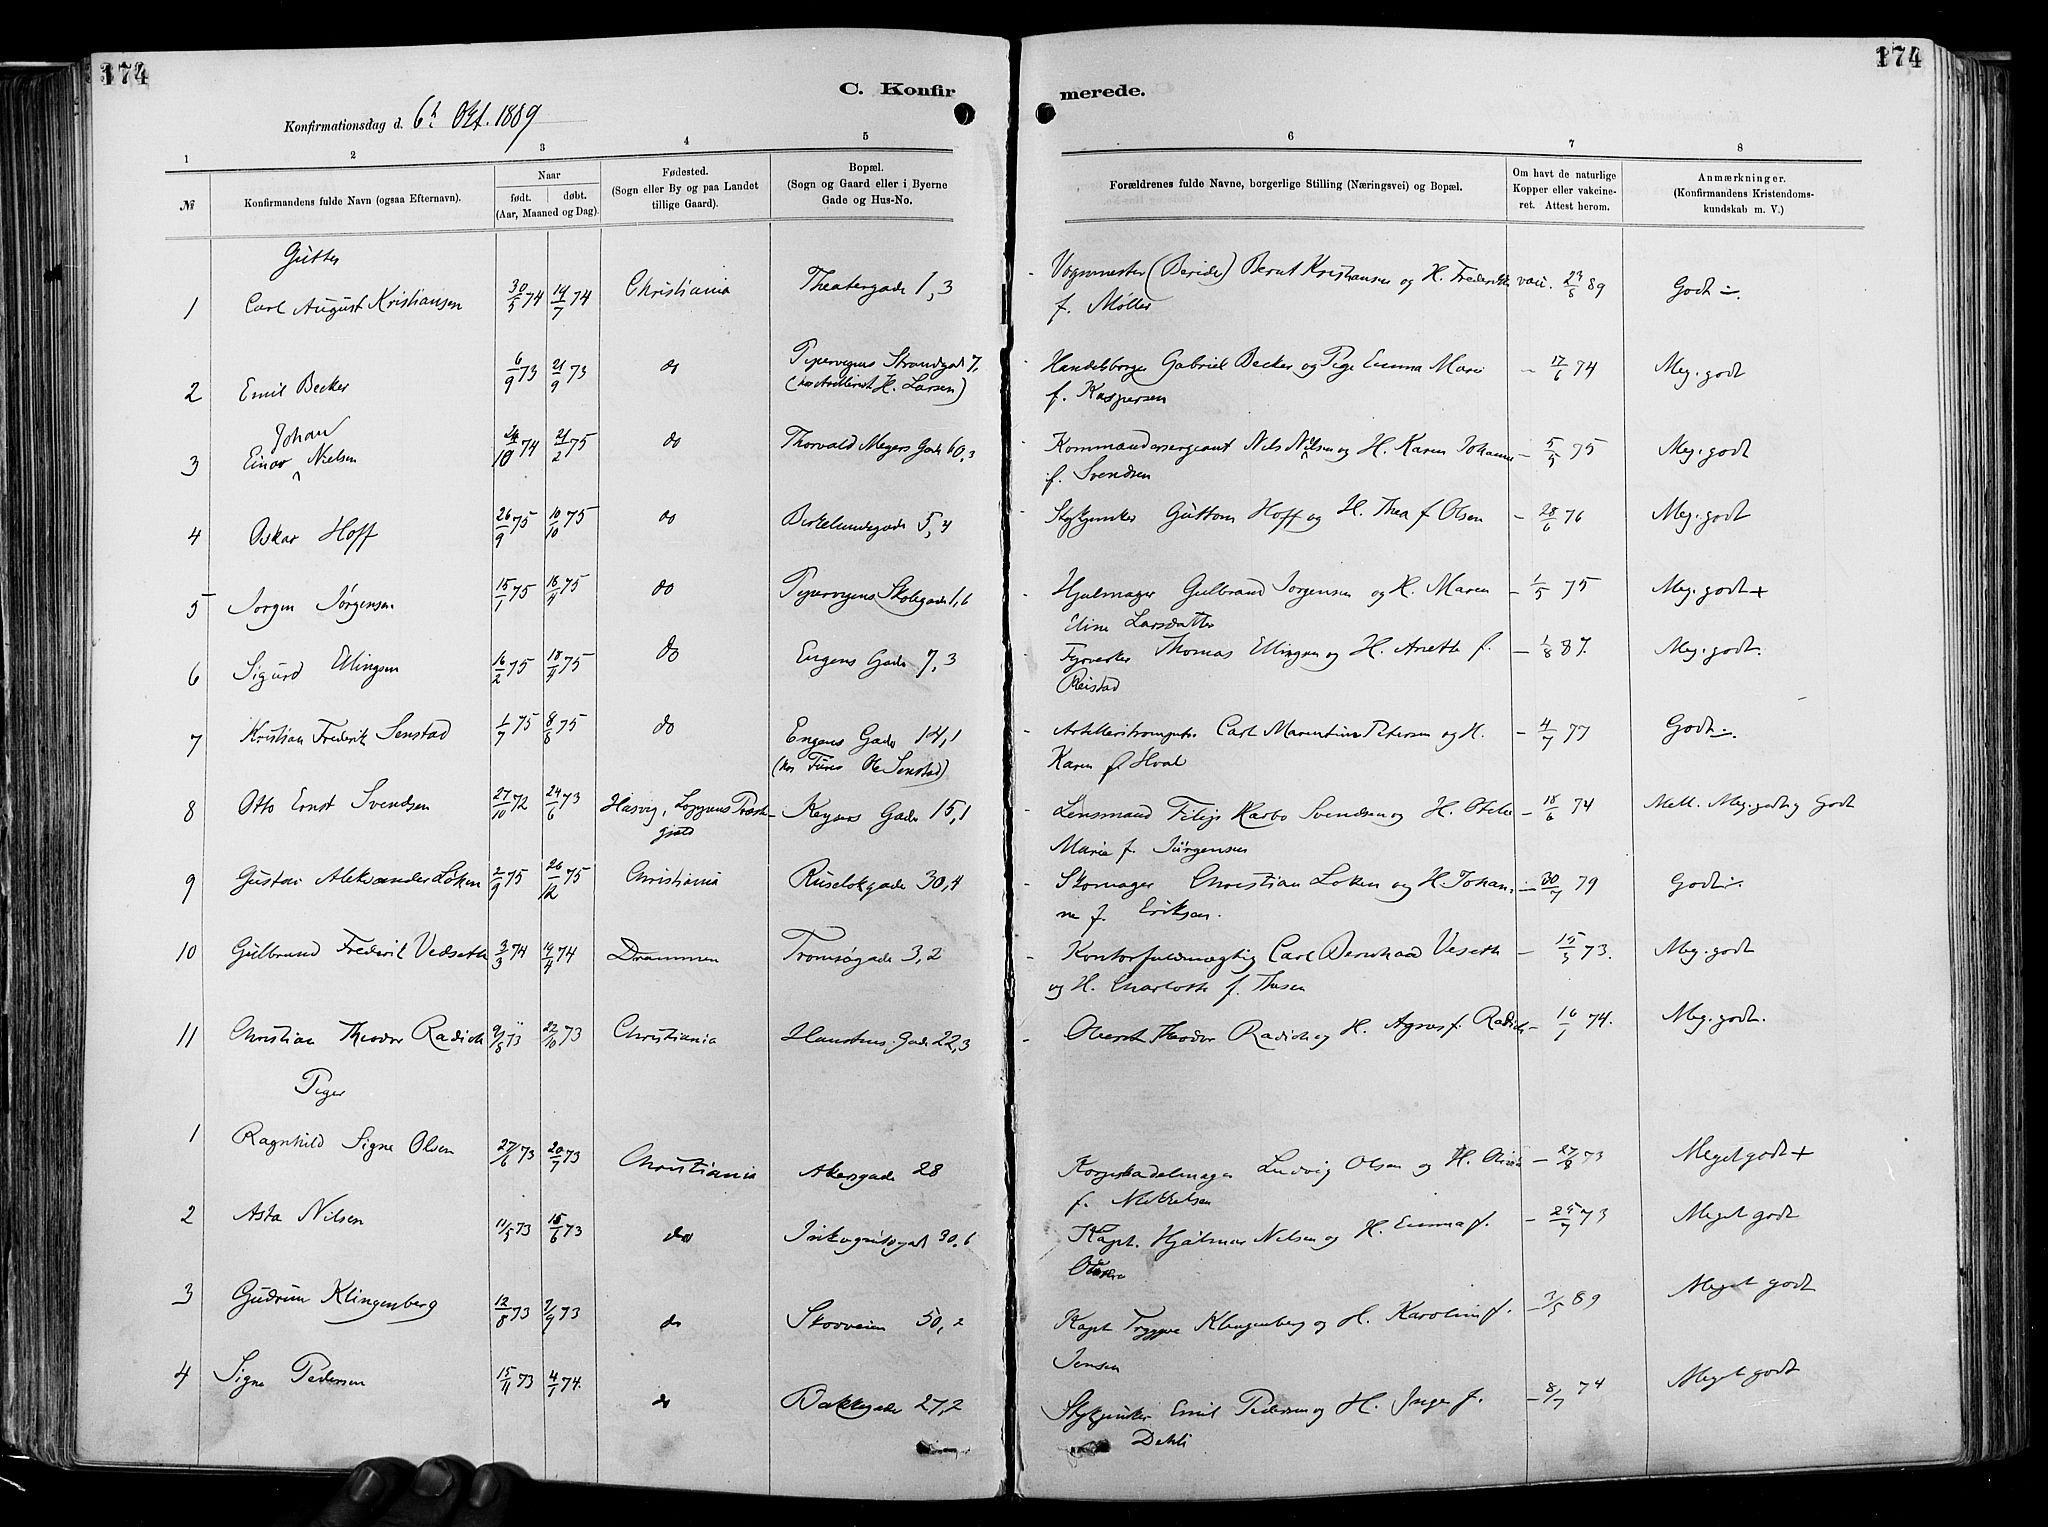 174
174
C. Konfirmerede.
Konfirmationsdag d. 6te Okt. 1889
1 2 3 4 5 6 7 8
№
Konfirmandens fulde Navn (ogsaa Efternavn).
Naar
født. døbt.
(Aar, Maaned og Dag).
Fødested.
(Sogn eller By og paa Landet
tillige Gaard).
Bopæl.
(Sogn og Gaard eller i Byerne
Gade og Hus-No.
Forældrenes fulde Navne, borgerlige Stilling (Næringsvei) og Bopæl.
Om havt de naturlige
Kopper eller vakcine-
ret. Attest herom.
Anmærkninger.
(Konfirmandens Kristendoms-
kundskab m. V.)
Gutter
1 Carl August Kristiansen 30/5 74 19/7 74 Christiania Theatergade 1,3 Vognmester (Beride) Bernt Kristiansen og H. Frederikke vac. 23/8 89 Godt ÷.
f. Møller
2 Emil Becker 6/9 73 21/9 73 do Pipervigens Strandgad 7, Handelsborger Gabriel Becker og Pige Emma Marie – 17/6 74 Meg. godt
(hos H. Larsen) f. Kaspersen
Johan
3 Einar Nielsen 24/10 74 21/2 75 do Thorvald Meyers Gade 60,3 Kommandersergeant Nils Nilsen og H. Karen Johanne – 5/5 75 Meg. godt
f. Svendsen
4 Oskar Hoff 26/9 75 10/10 75 do Birkelundegade 5,4 Stykjunker Guttorm Hoff og H. Thea f. Olsen – 28/6 76 Meg. godt
5 Jørgen Jørgensen 15/1 75 18/4 75 do Pipervigens Skolegade 1,6 Hjulmager Gulbrand Jørgensen og H. Maren – 1/5 75 Meg. godt +
Eline Larsdatter
6 Sigurd Ellingsen 16/2 75 18/4 75 do Engens Gade 7,3 Fyrverker Thomas Ellingsen og H. Anette f. – 1/8 87. Meg. godt.
Reistad
7 Kristian Frederik Senstad 1/7 75 8/8 75 do Engens Gade 14,1 Artilleritrompeter Carl Marentius Petersen og H. – 4/7 77 Godt ÷.
(hos Ole Senstad) Karen f. Hval
8 Otto Ernst Svendsen 27/10 72 24/6 73 Hasvig, Loppens Præste- Keysers Gade 15,1 Lensmand Filip Svendsen og H. – 18/6 74 Mell. Meg. godt og Godt
gjeld Marie f. Jürgensen
9 Gustav Aleksander Løken 2/9 75 26/12 75 Christiania Ruseløkgade 30,4 Skomager Christian Løken og H. Johan- – 30/7 79 Godt ÷.
ne f. Eriksen.
10 Gulbrand Frederik Vedseth 3/3 74 19/4 74 Drammen Tromsøgade 3,2 Kontorfuldmægtig Carl Bernhard Veseth – 15/5 73. Meg. godt
og H. Charlotte f. Thesen
11 Christian Theodor Radich 9/8 73 22/10 73 Christiania Hausmans Gade 22,3 Oberst Theodor Radich og H. Agnes f. Radich – 16/1 74. Meg. godt.
Piger
1 Ragnhild Signe Olsen 27/6 73 20/7 73 Christiania Akersgade 28 Ludvig Olsen og H. – 27/9 73 Meget godt +
f. Mikkelsen
2 Asta Nilsen 11/5 73 15/6 73 do 30,6 Kapt. Hjalmar Nilsen og H. Emma f. – 25/7 73 Meget godt
3 Gudrun Klingenberg 12/8 73 7/9 73 do Skovveien 50,2 Kapt Tryggve Klingenberg og H. Karoline f. – 3/5 89 Meget godt
Jensen
4 Signe Pedersen 15/11 73 4/1 74. do Bakkegade 27,2 Stykjunker Emil Pedersen og H. Inger f. – 8/7 74 Meget godt
Dehli